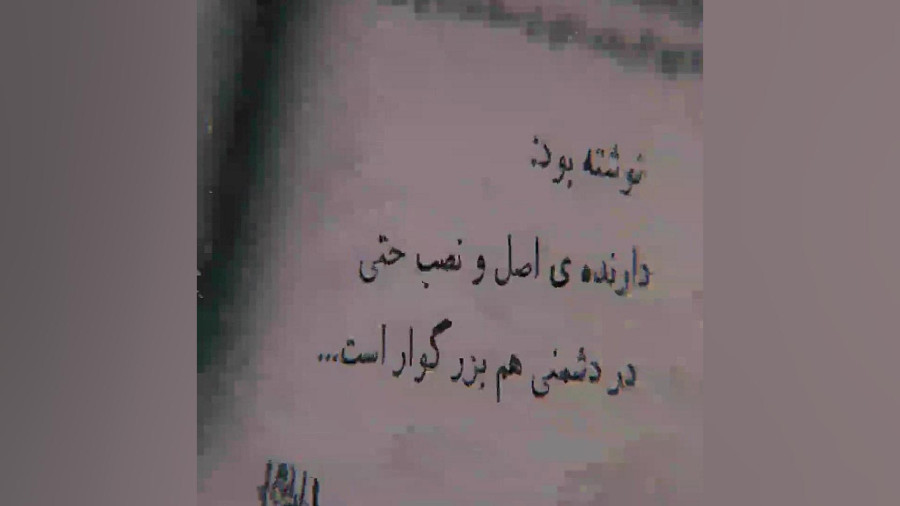 نوشته بود:
دارنده ی اصل و نصب حتی
در دشمنی هم بزرگوار است...